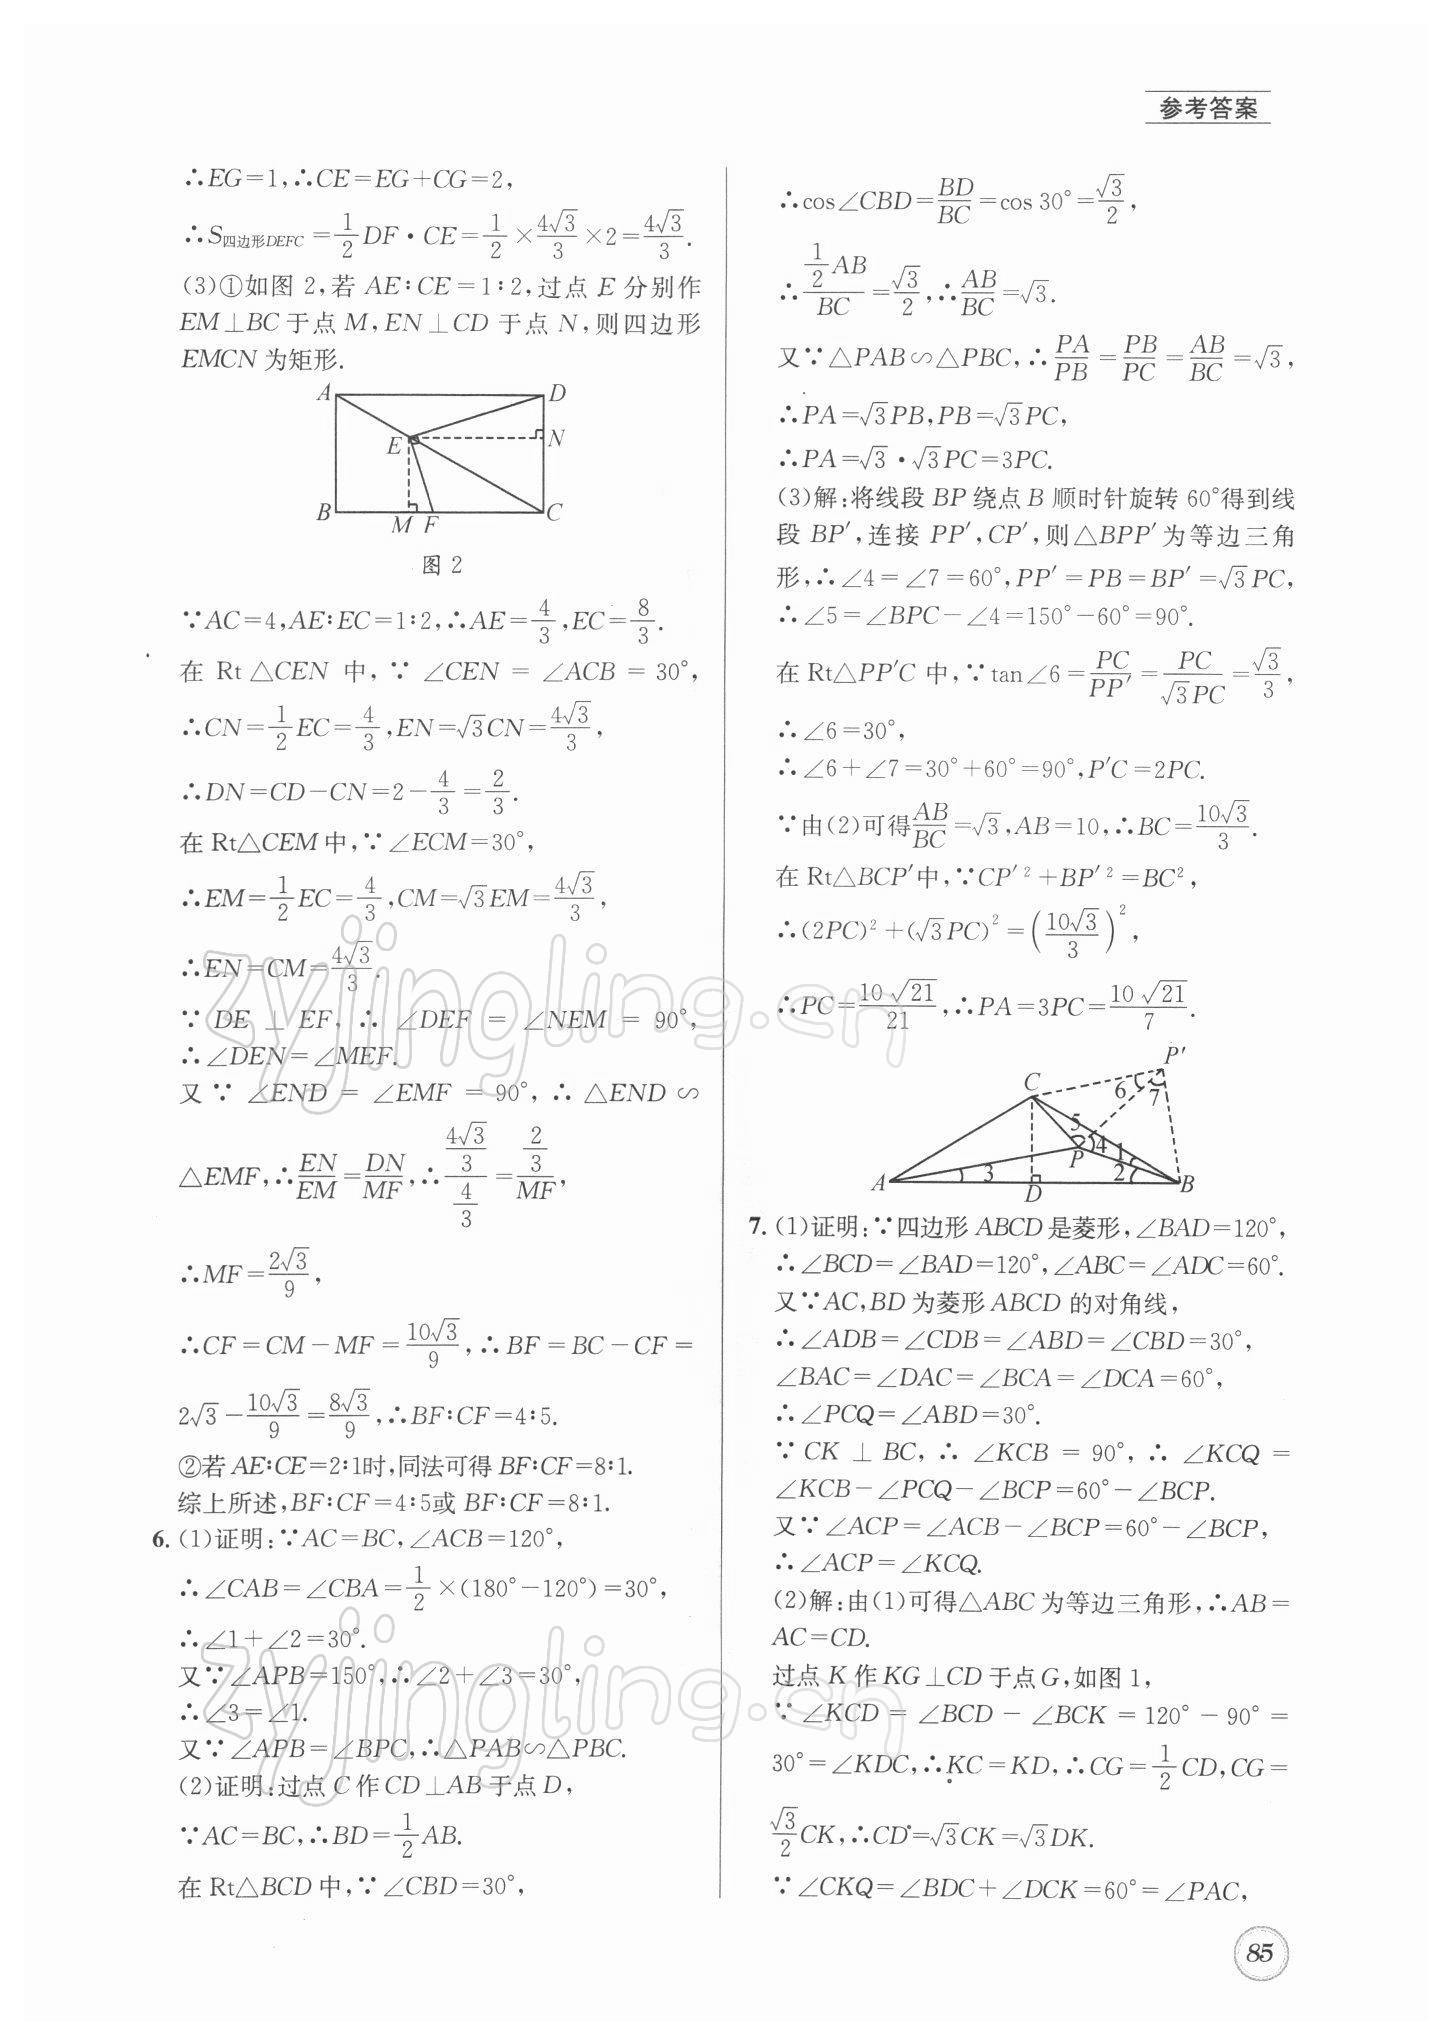 参考答案
∴EG=1,∴CE=EG+CG=2,
∴S四边形DEFC=1/2DF·CE=1/2×4√3/3×2=4√3/3.
(3)①如图 2,若 AE∶CE=1∶2,过点 E 分别作
EM⊥BC于点 M,EN⊥CD 于点 N,则四边形
EMCN 为矩形.
A D
E N
B M F C
图 2
∵AC=4,AE∶EC=1∶2,∴AE=4/3,EC=8/3.
在 Rt△CEN 中,∵∠CEN=∠ACB=30°,
∴CN=1/2EC=4/3,EN=√3CN=4√3/3,
∴DN=CD-CN=2-4/3=2/3.
在 Rt△CEM中,∵∠ECM=30°,
∴EM=1/2EC=4/3,CM=√3EM=4√3/3,
∴EN=CM=4√3/3.
∵DE⊥EF,∴∠DEF=∠NEM=90°,
∴∠DEN=∠MEF.
又∵∠END=∠EMF=90°,∴△END∽
△EMF,∴EN/EM=DN/MF,∴(4√3/3)/(4/3)=(2/3)/MF,
∴MF=2√3/9,
∴CF=CM-MF=10√3/9,∴BF=BC-CF=
2√3-10√3/9=8√3/9,∴BF∶CF=4∶5.
②若AE∶CE=2∶1时,同法可得BF∶CF=8∶1.
综上所述,BF∶CF=4∶5或 BF∶CF=8∶1.
6. (1)证明:∵AC=BC,∠ACB=120°,
∴∠CAB=∠CBA=1/2×(180°-120°)=30°,
∴∠1+∠2=30°.
又∵∠APB=150°,∴∠2+∠3=30°,
∴∠3=∠1.
又∵∠APB=∠BPC,∴△PAB∽△PBC.
(2)证明:过点 C 作 CD⊥AB 于点 D,
∵AC=BC,∴BD=1/2AB.
在 Rt△BCD 中,∵∠CBD=30°,
∴cos∠CBD=BD/BC=cos 30°=√3/2,
∴(1/2AB)/BC=√3/2,∴AB/BC=√3.
又∵△PAB∽△PBC,∴PA/PB=PB/PC=AB/BC=√3,
∴PA=√3PB,PB=√3PC,
∴PA=√3·√3PC=3PC.
(3)解:将线段 BP 绕点 B 顺时针旋转 60°得到线
段 BP′,连接 PP′,CP′,则△BPP′为等边三角
形,∴∠4=∠7=60°,PP′=PB=BP′=√3PC,
∴∠5=∠BPC-∠4=150°-60°=90°.
在 Rt△PP′C 中,∵tan∠6=PC/PP′=PC/√3PC=√3/3,
∴∠6=30°,
∴∠6+∠7=30°+60°=90°,P′C=2PC.
∵由(2)可得AB/BC=√3,AB=10,∴BC=10√3/3.
在 Rt△BCP′中,∵CP′²+BP′²=BC²,
∴(2PC)²+(√3PC)²=(10√3/3)²,
∴PC=10√21/21,∴PA=3PC=10√21/7.
P′
C 6 7
5 4 1
A 3 P 2 B
D
7. (1)证明:∵四边形 ABCD 是菱形,∠BAD=120°,
∴∠BCD=∠BAD=120°,∠ABC=∠ADC=60°.
又∵AC,BD 为菱形 ABCD 的对角线,
∴∠ADB=∠CDB=∠ABD=∠CBD=30°,
∠BAC=∠DAC=∠BCA=∠DCA=60°,
∴∠PCQ=∠ABD=30°.
∵CK⊥BC,∴∠KCB=90°,∴∠KCQ=
∠KCB-∠PCQ-∠BCP=60°-∠BCP.
又∵∠ACP=∠ACB-∠BCP=60°-∠BCP,
∴∠ACP=∠KCQ.
(2)解:由(1)可得△ABC 为等边三角形,∴AB=
AC=CD.
过点 K 作 KG⊥CD 于点 G,如图 1,
∵∠KCD=∠BCD-∠BCK=120°-90°=
30°=∠KDC,∴KC=KD,∴CG=1/2CD,CG=
√3/2CK,∴CD=√3CK=√3DK.
∵∠CKQ=∠BDC+∠DCK=60°=∠PAC,
85
zyjingling.cn
zyjingling.cn